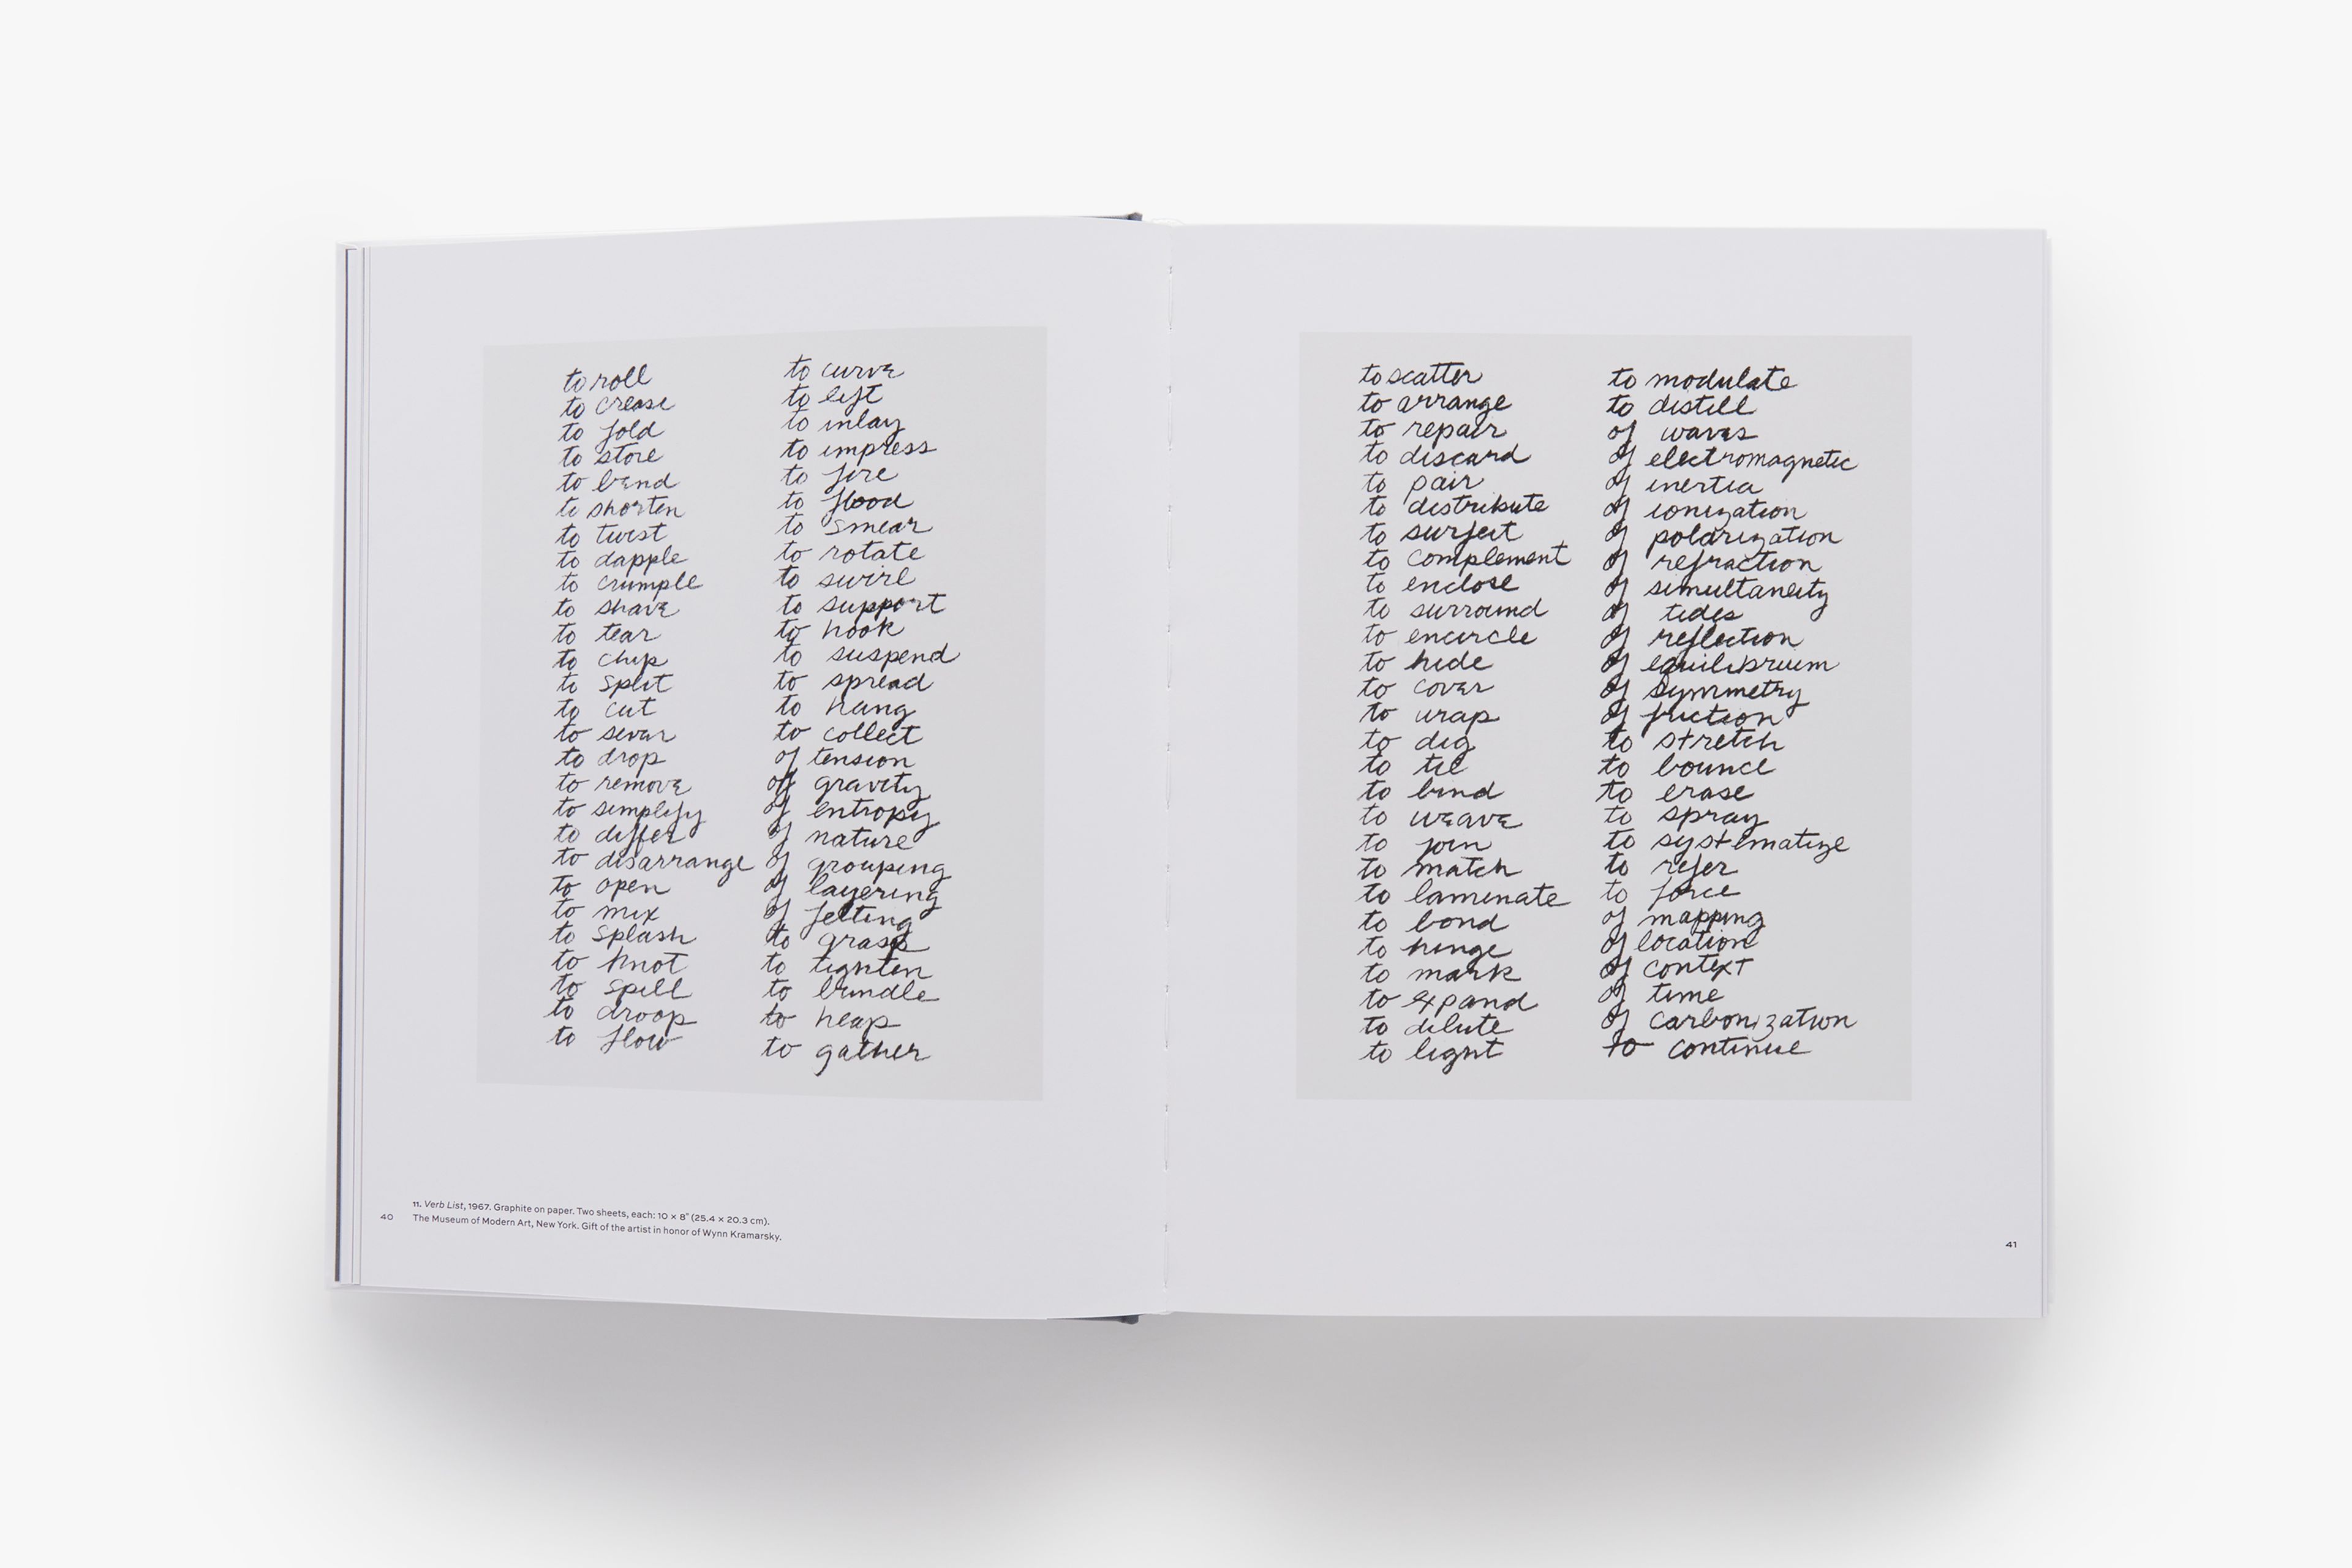 to roll
to crease
to fold
to store
to bend
to shorten
to twist
to dapple
to crumple
to shave
to tear
to chip
to split
to cut
to sever
to drop
to remove
to simplify
to differ
to disarrange
to open
to mix
to splash
to knot
to spill
to droop
to flow
to curve
to lift
to inlay
to impress
to fire
to flood
to smear
to rotate
to swirl
to support
to hook
to suspend
to spread
to hang
to collect
of tension
of gravity
of entropy
of nature
of grouping
of layering
of felting
to grasp
to tighten
to bundle
to heap
to gather
11. Verb List, 1967. Graphite on paper. Two sheets, each: 10 × 8" (25.4 × 20.3 cm).
The Museum of Modern Art, New York. Gift of the artist in honor of Wynn Kramarsky.
40
to scatter
to arrange
to repair
to discard
to pair
to distribute
to surfeit
to complement
to enclose
to surround
to encircle
to hide
to cover
to wrap
to dig
to tie
to bind
to weave
to join
to match
to laminate
to bond
to hinge
to mark
to expand
to dilute
to light
to modulate
to distill
of waves
of electromagnetic
of inertia
of ionization
of polarization
of refraction
of simultaneity
of tides
of reflection
of equilibrium
of symmetry
of friction
to stretch
to bounce
to erase
to spray
to systematize
to refer
to force
of mapping
of location
of context
of time
of carbonization
to continue
41